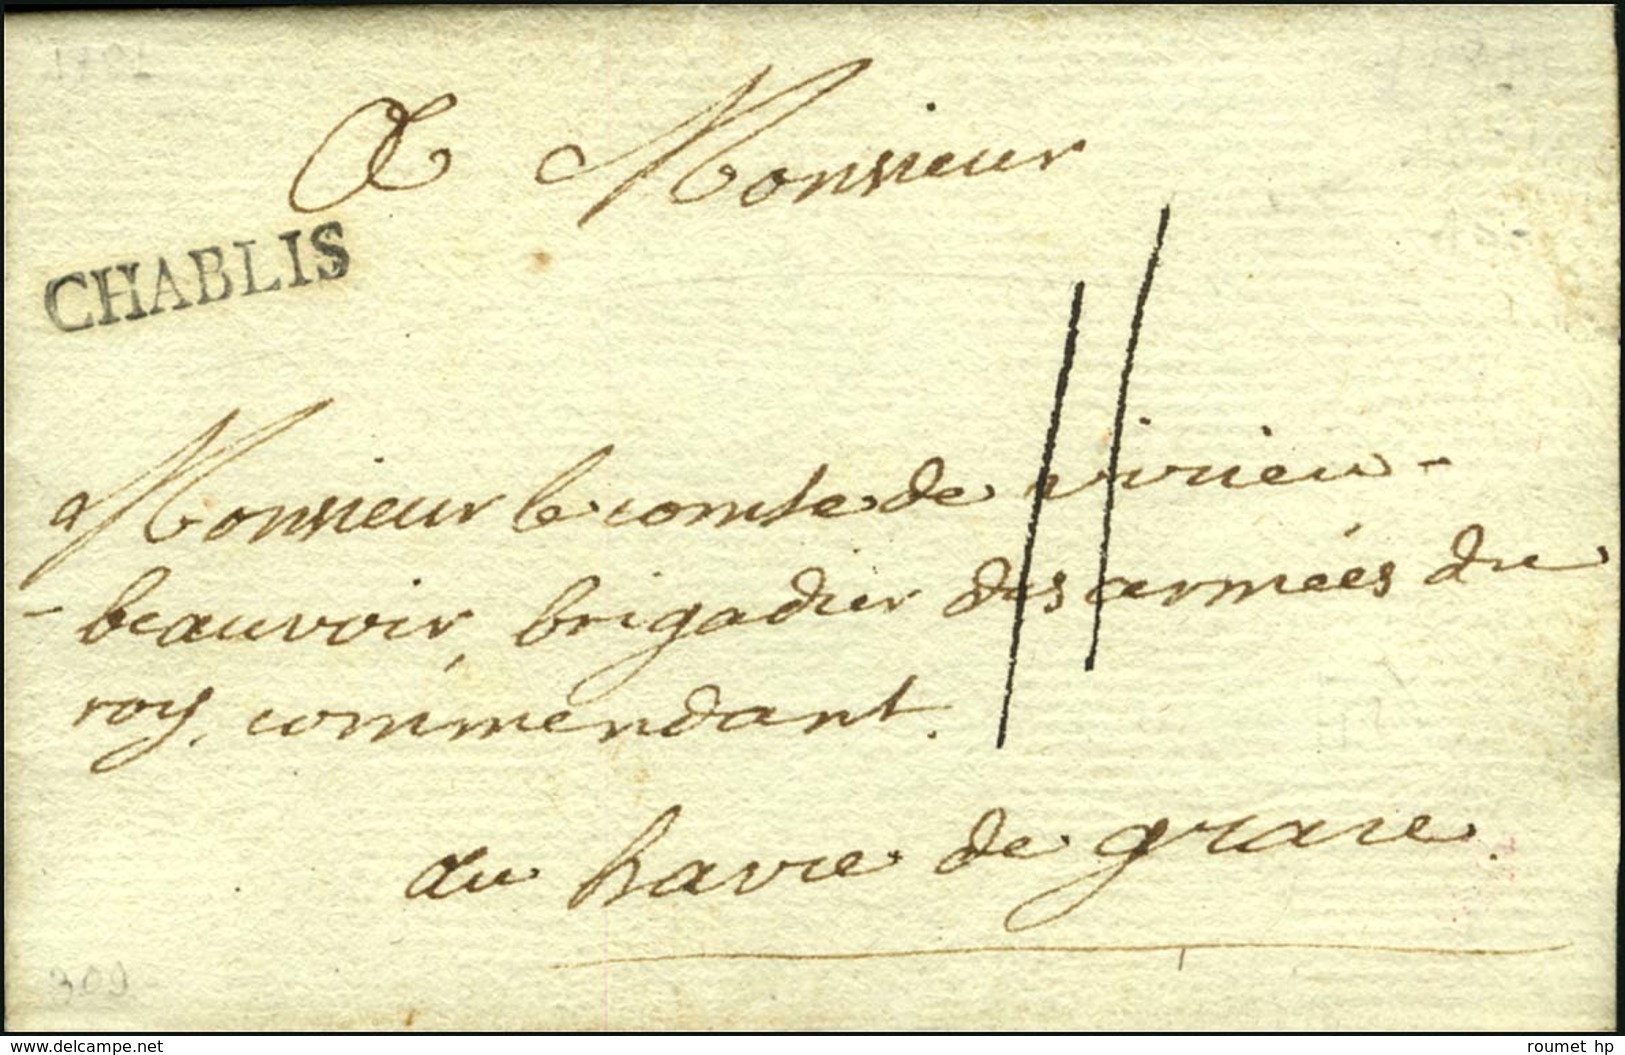 A Monsieur
CHABLIS
11
Monsieur le comte de virieu-
-beauvoir, brigadier des armées du
roy, commendant.
au havre de grace.
309
www.delcampe.net
roumet hp